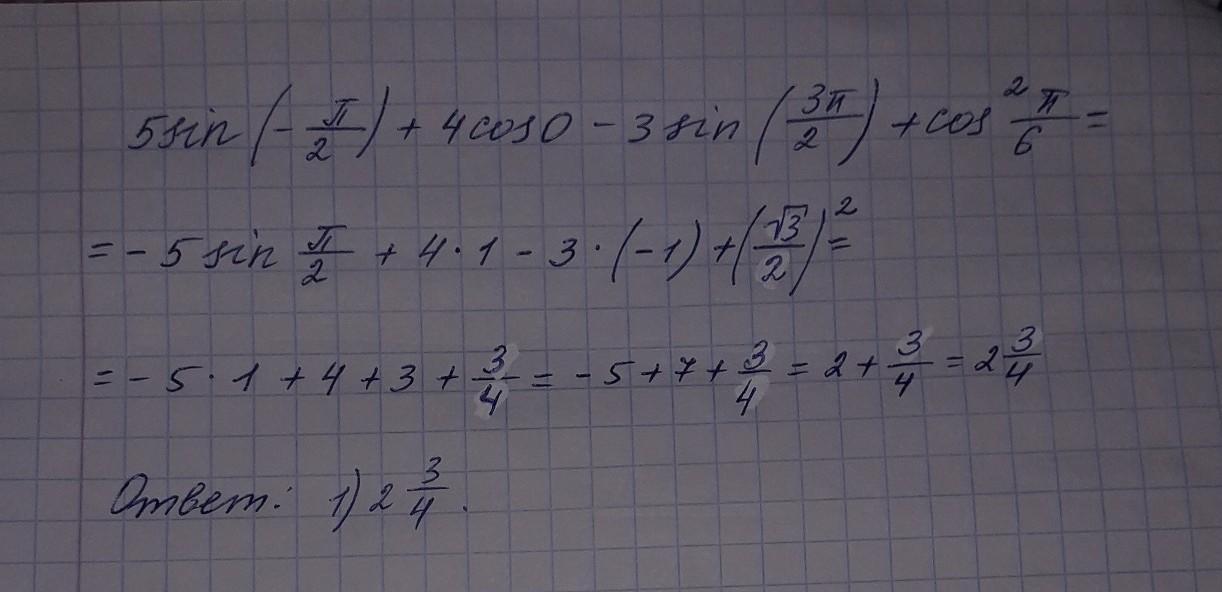 5sin(-π/2) + 4cos0 - 3sin(3π/2) + cos²π/6 =
= - 5sin π/2 + 4·1 - 3·(-1) + (√3/2)² =
= - 5·1 + 4 + 3 + 3/4 = - 5 + 7 + 3/4 = 2 + 3/4 = 2 3/4
Ответ: 1) 2 3/4.